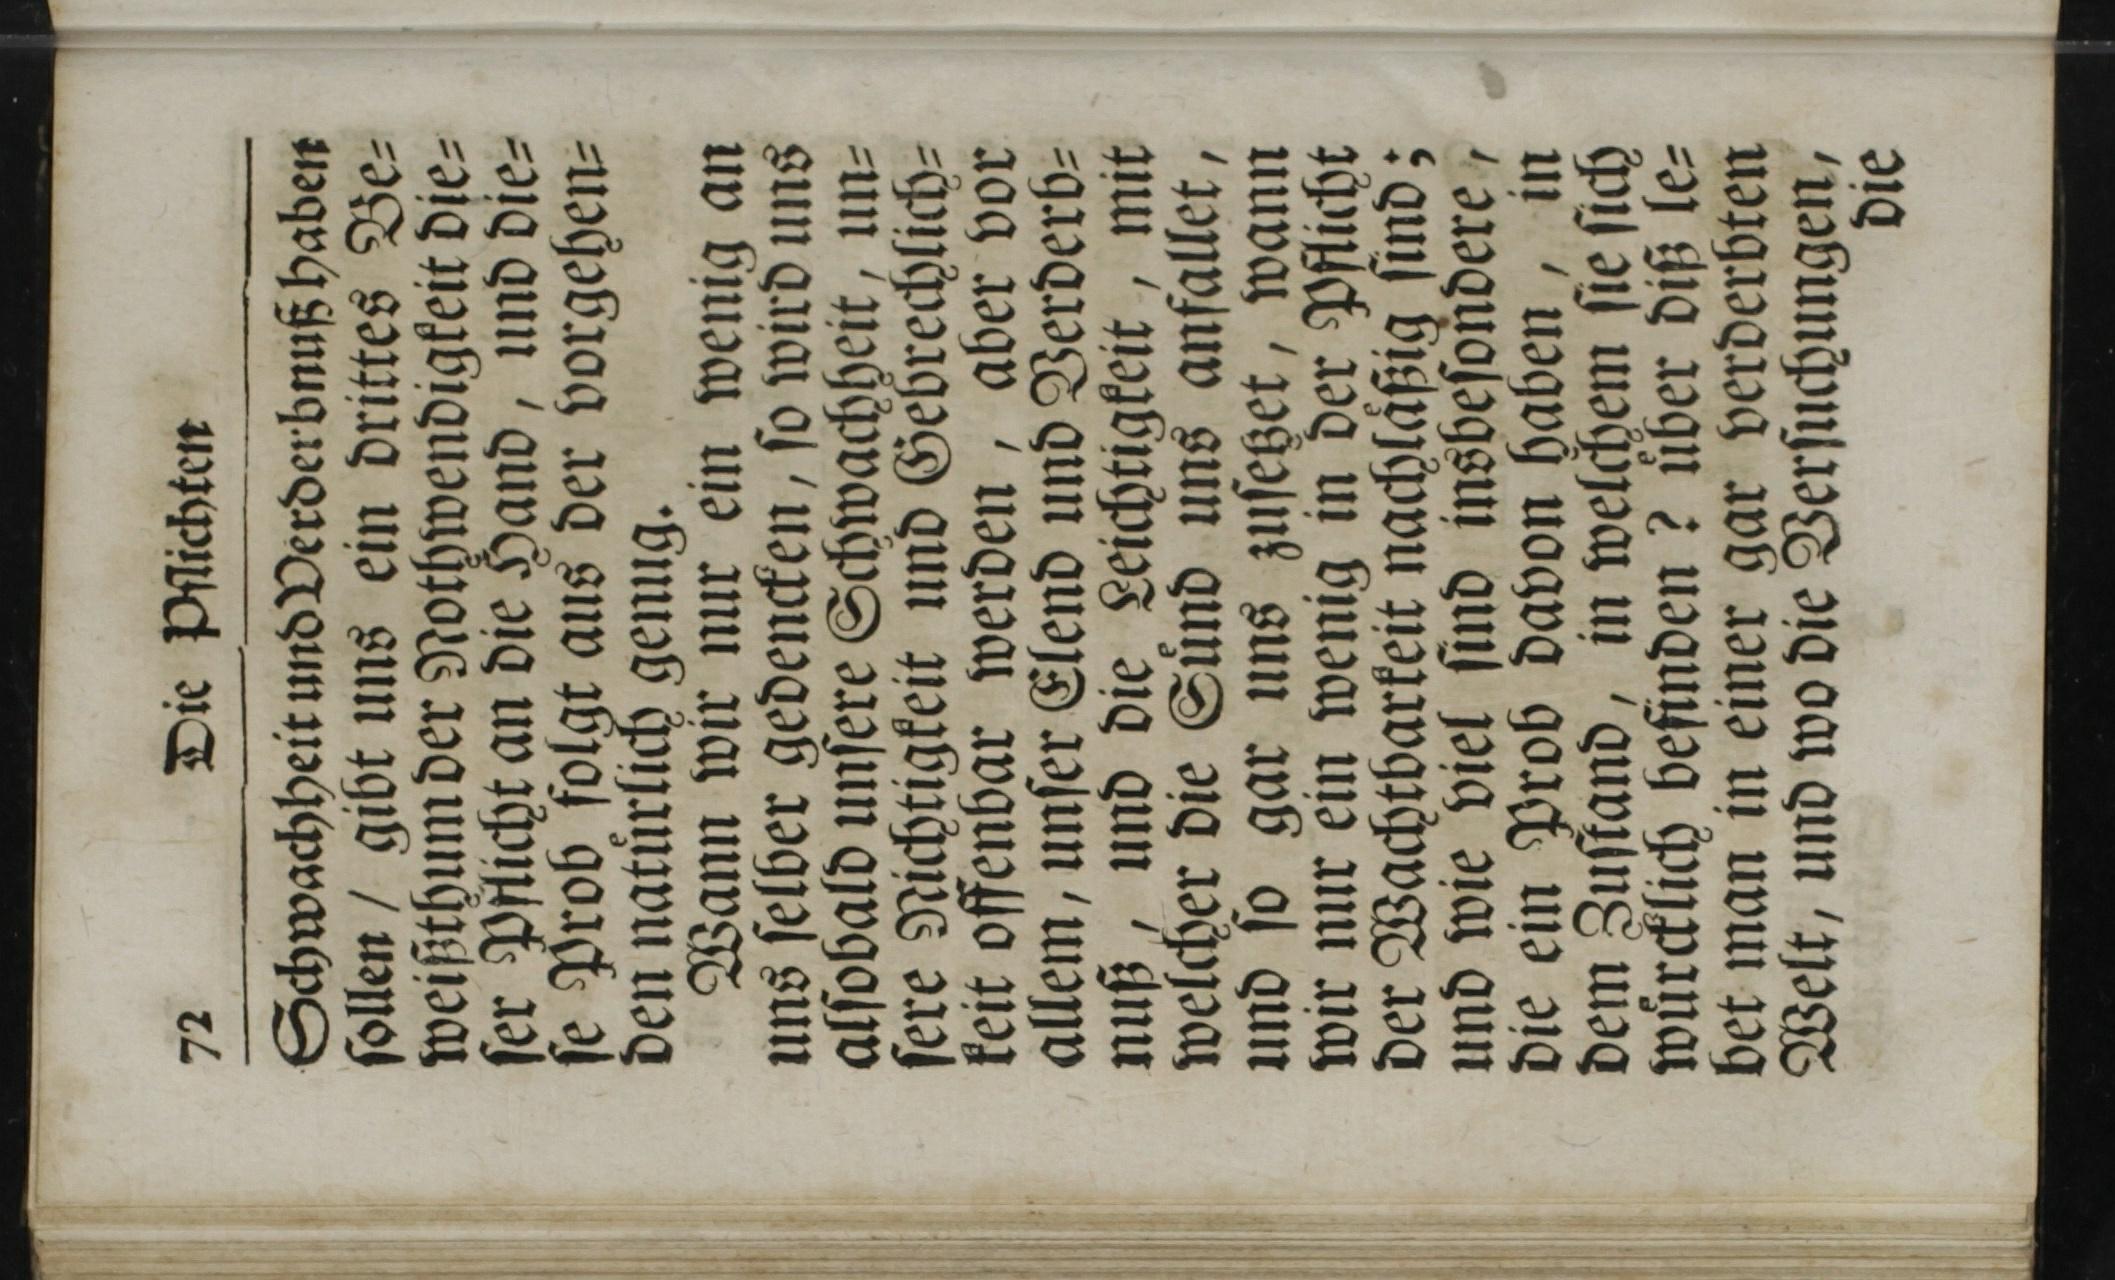 72 Die Pflichten
Schwachheit und Verderbnuß haben
sollen / gibt uns ein drittes Be=
weißthum der Nothwendigkeit die=
ser Pflicht an die Hand, und die=
se Prob folgt aus der vorgehen=
den natuͤrlich genug.
Wann wir nur ein wenig an
uns selber gedencken, so wird uns
alsobald unsere Schwachheit, un=
sere Nichtigkeit und Gebrechlich=
keit offenbar werden, aber vor
allem, unser Elend und Verderb=
nuß, und die Leichtigkeit, mit
welcher die Suͤnd uns anfallet,
und so gar uns zusetzet, wann
wir nur ein wenig in der Pflicht
der Wachtbarkeit nachlaͤßig sind;
und wie viel sind insbesondere,
die ein Prob davon haben, in
dem Zustand, in welchem sie sich
wuͤrcklich befinden? uͤber diß le=
bet man in einer gar verderbten
Welt, und wo die Versuchungen,
die